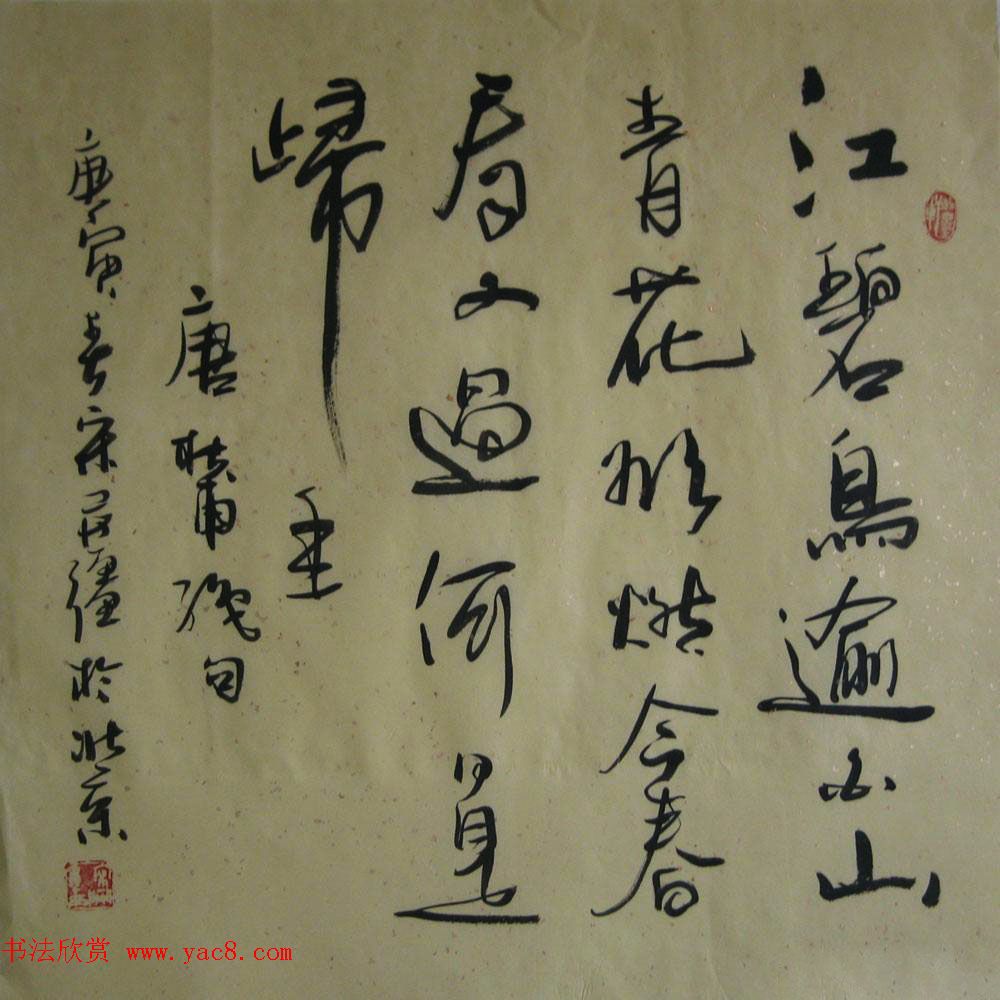 江碧鳥逾白山
青花欲燃今春
看又過何日是
歸年
唐杜甫絕句
庚寅春宋疆於北京
书法欣赏 www.yac8.com